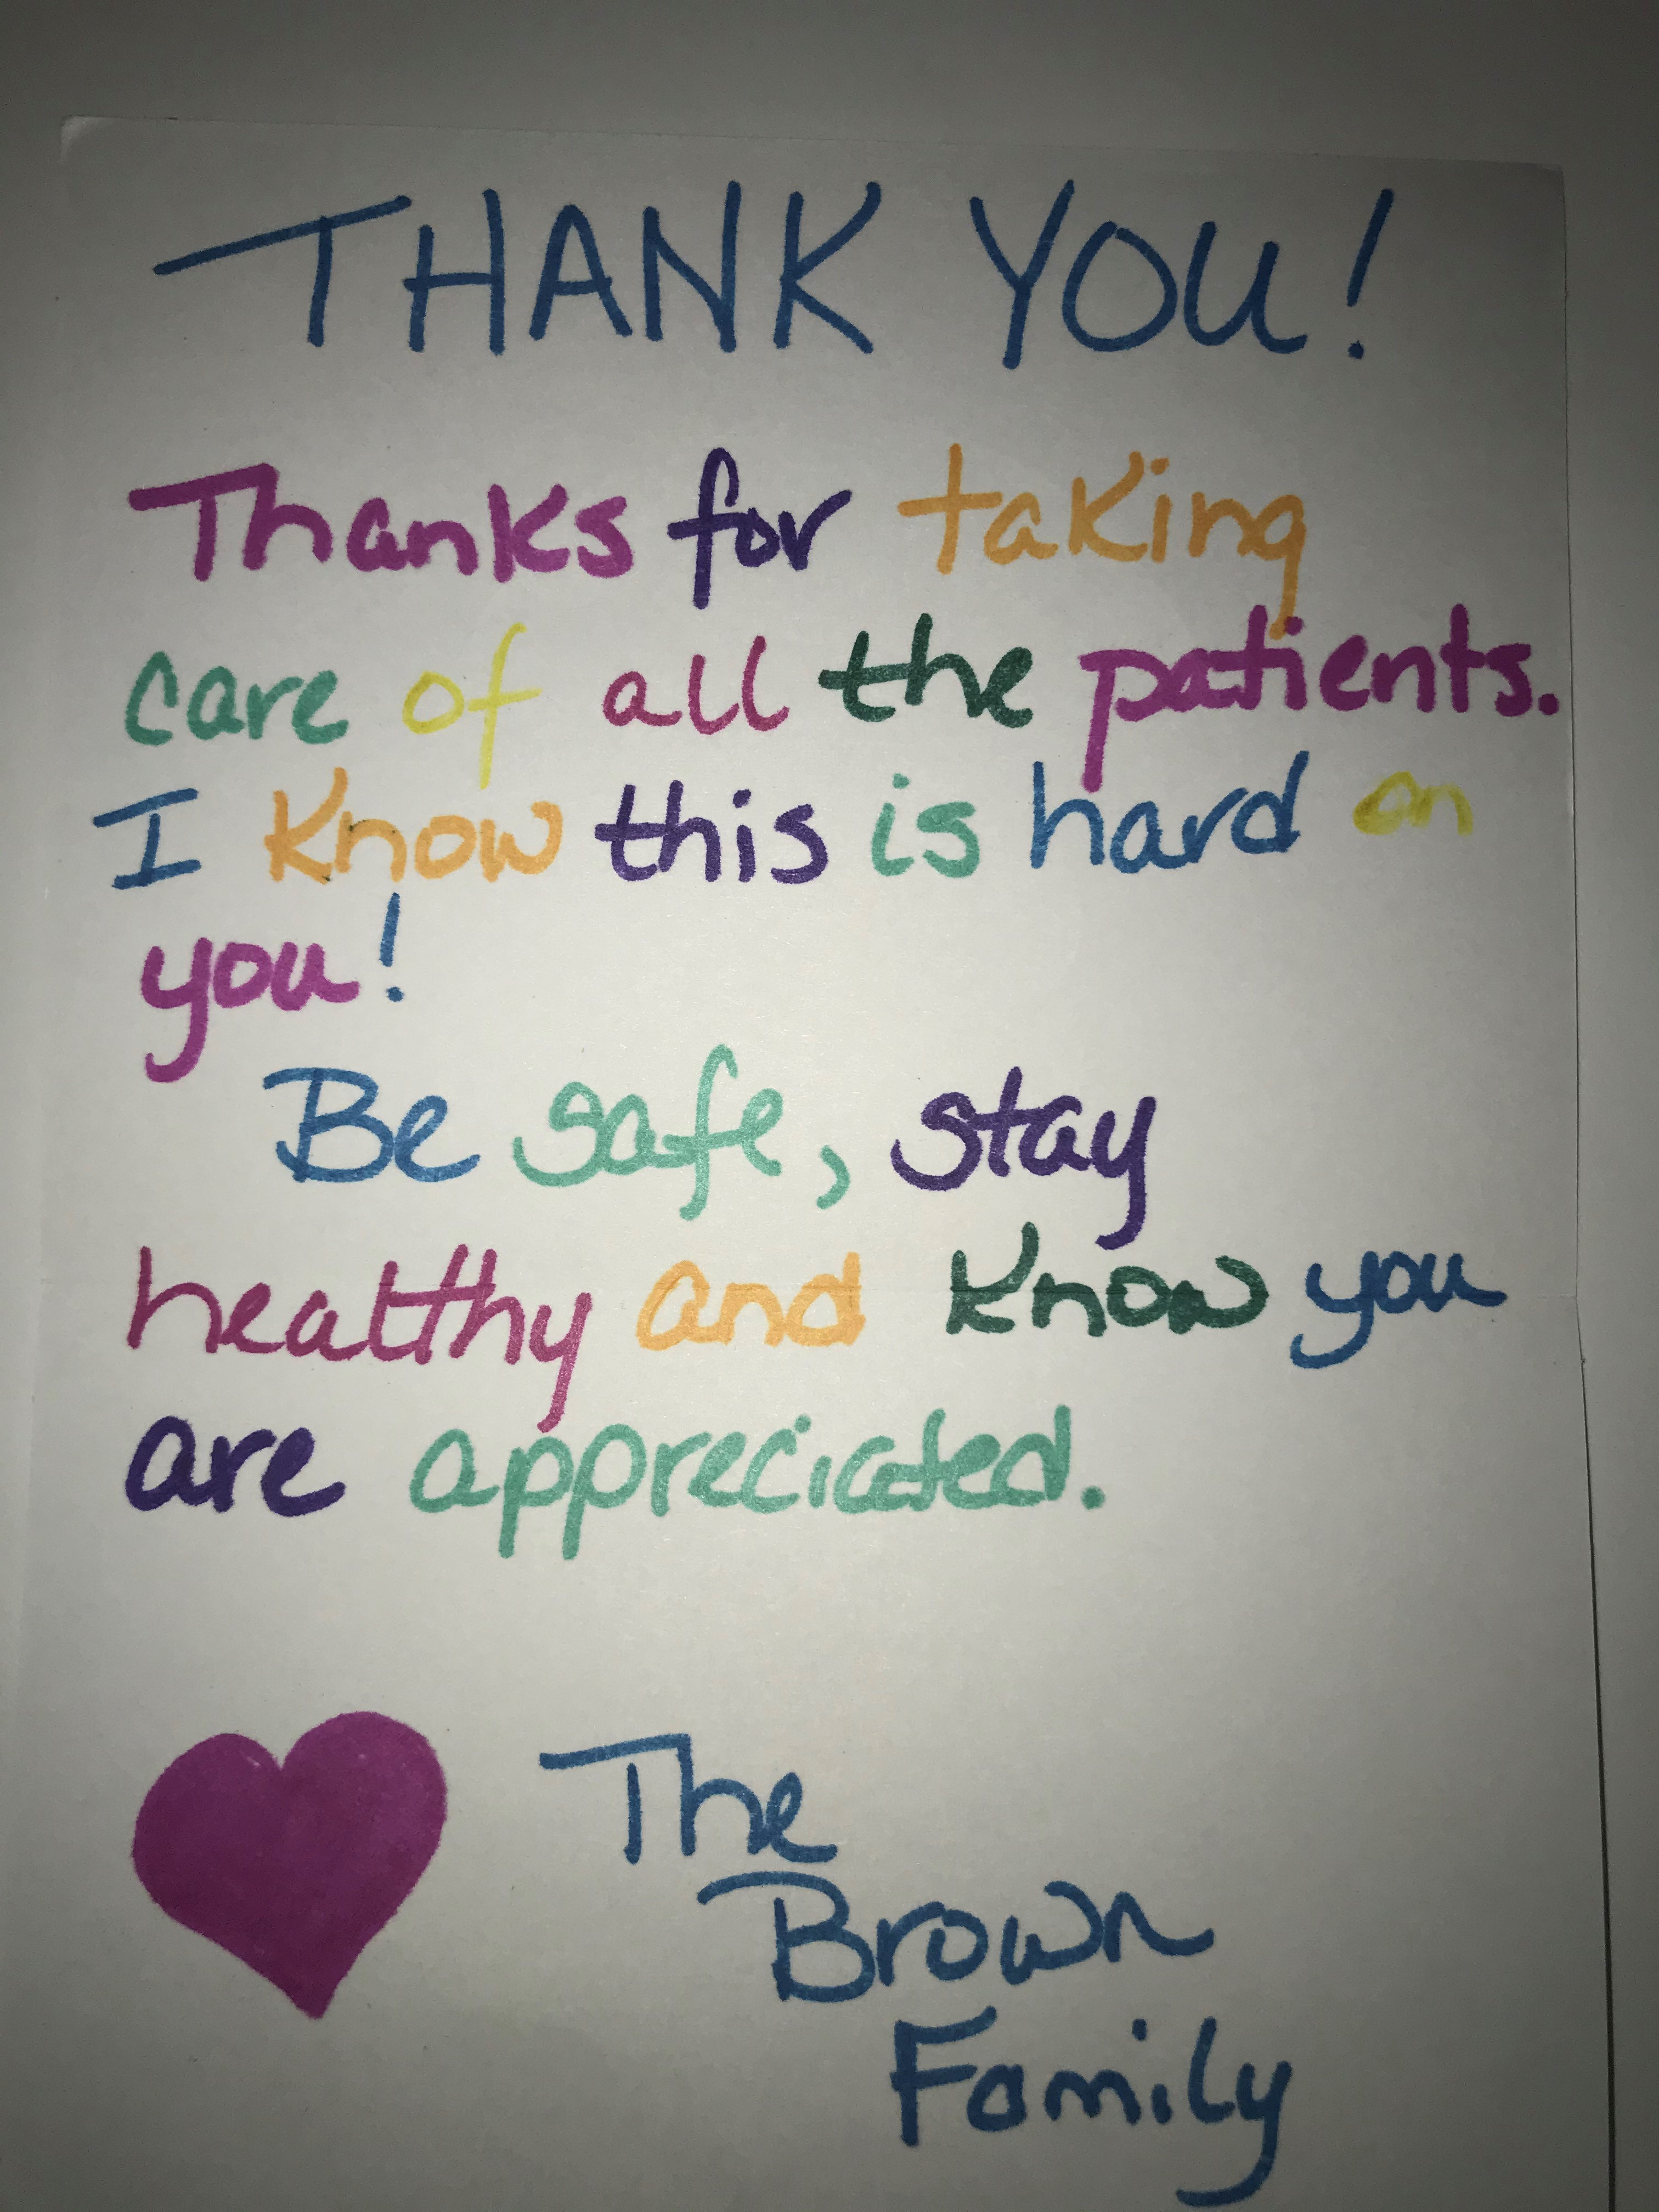 THANK YOU!
Thanks for taking
care of all the patients.
I know this is hard on
you!
Be safe, stay
healthy and know you
are appreciated.
The
Brown
Family